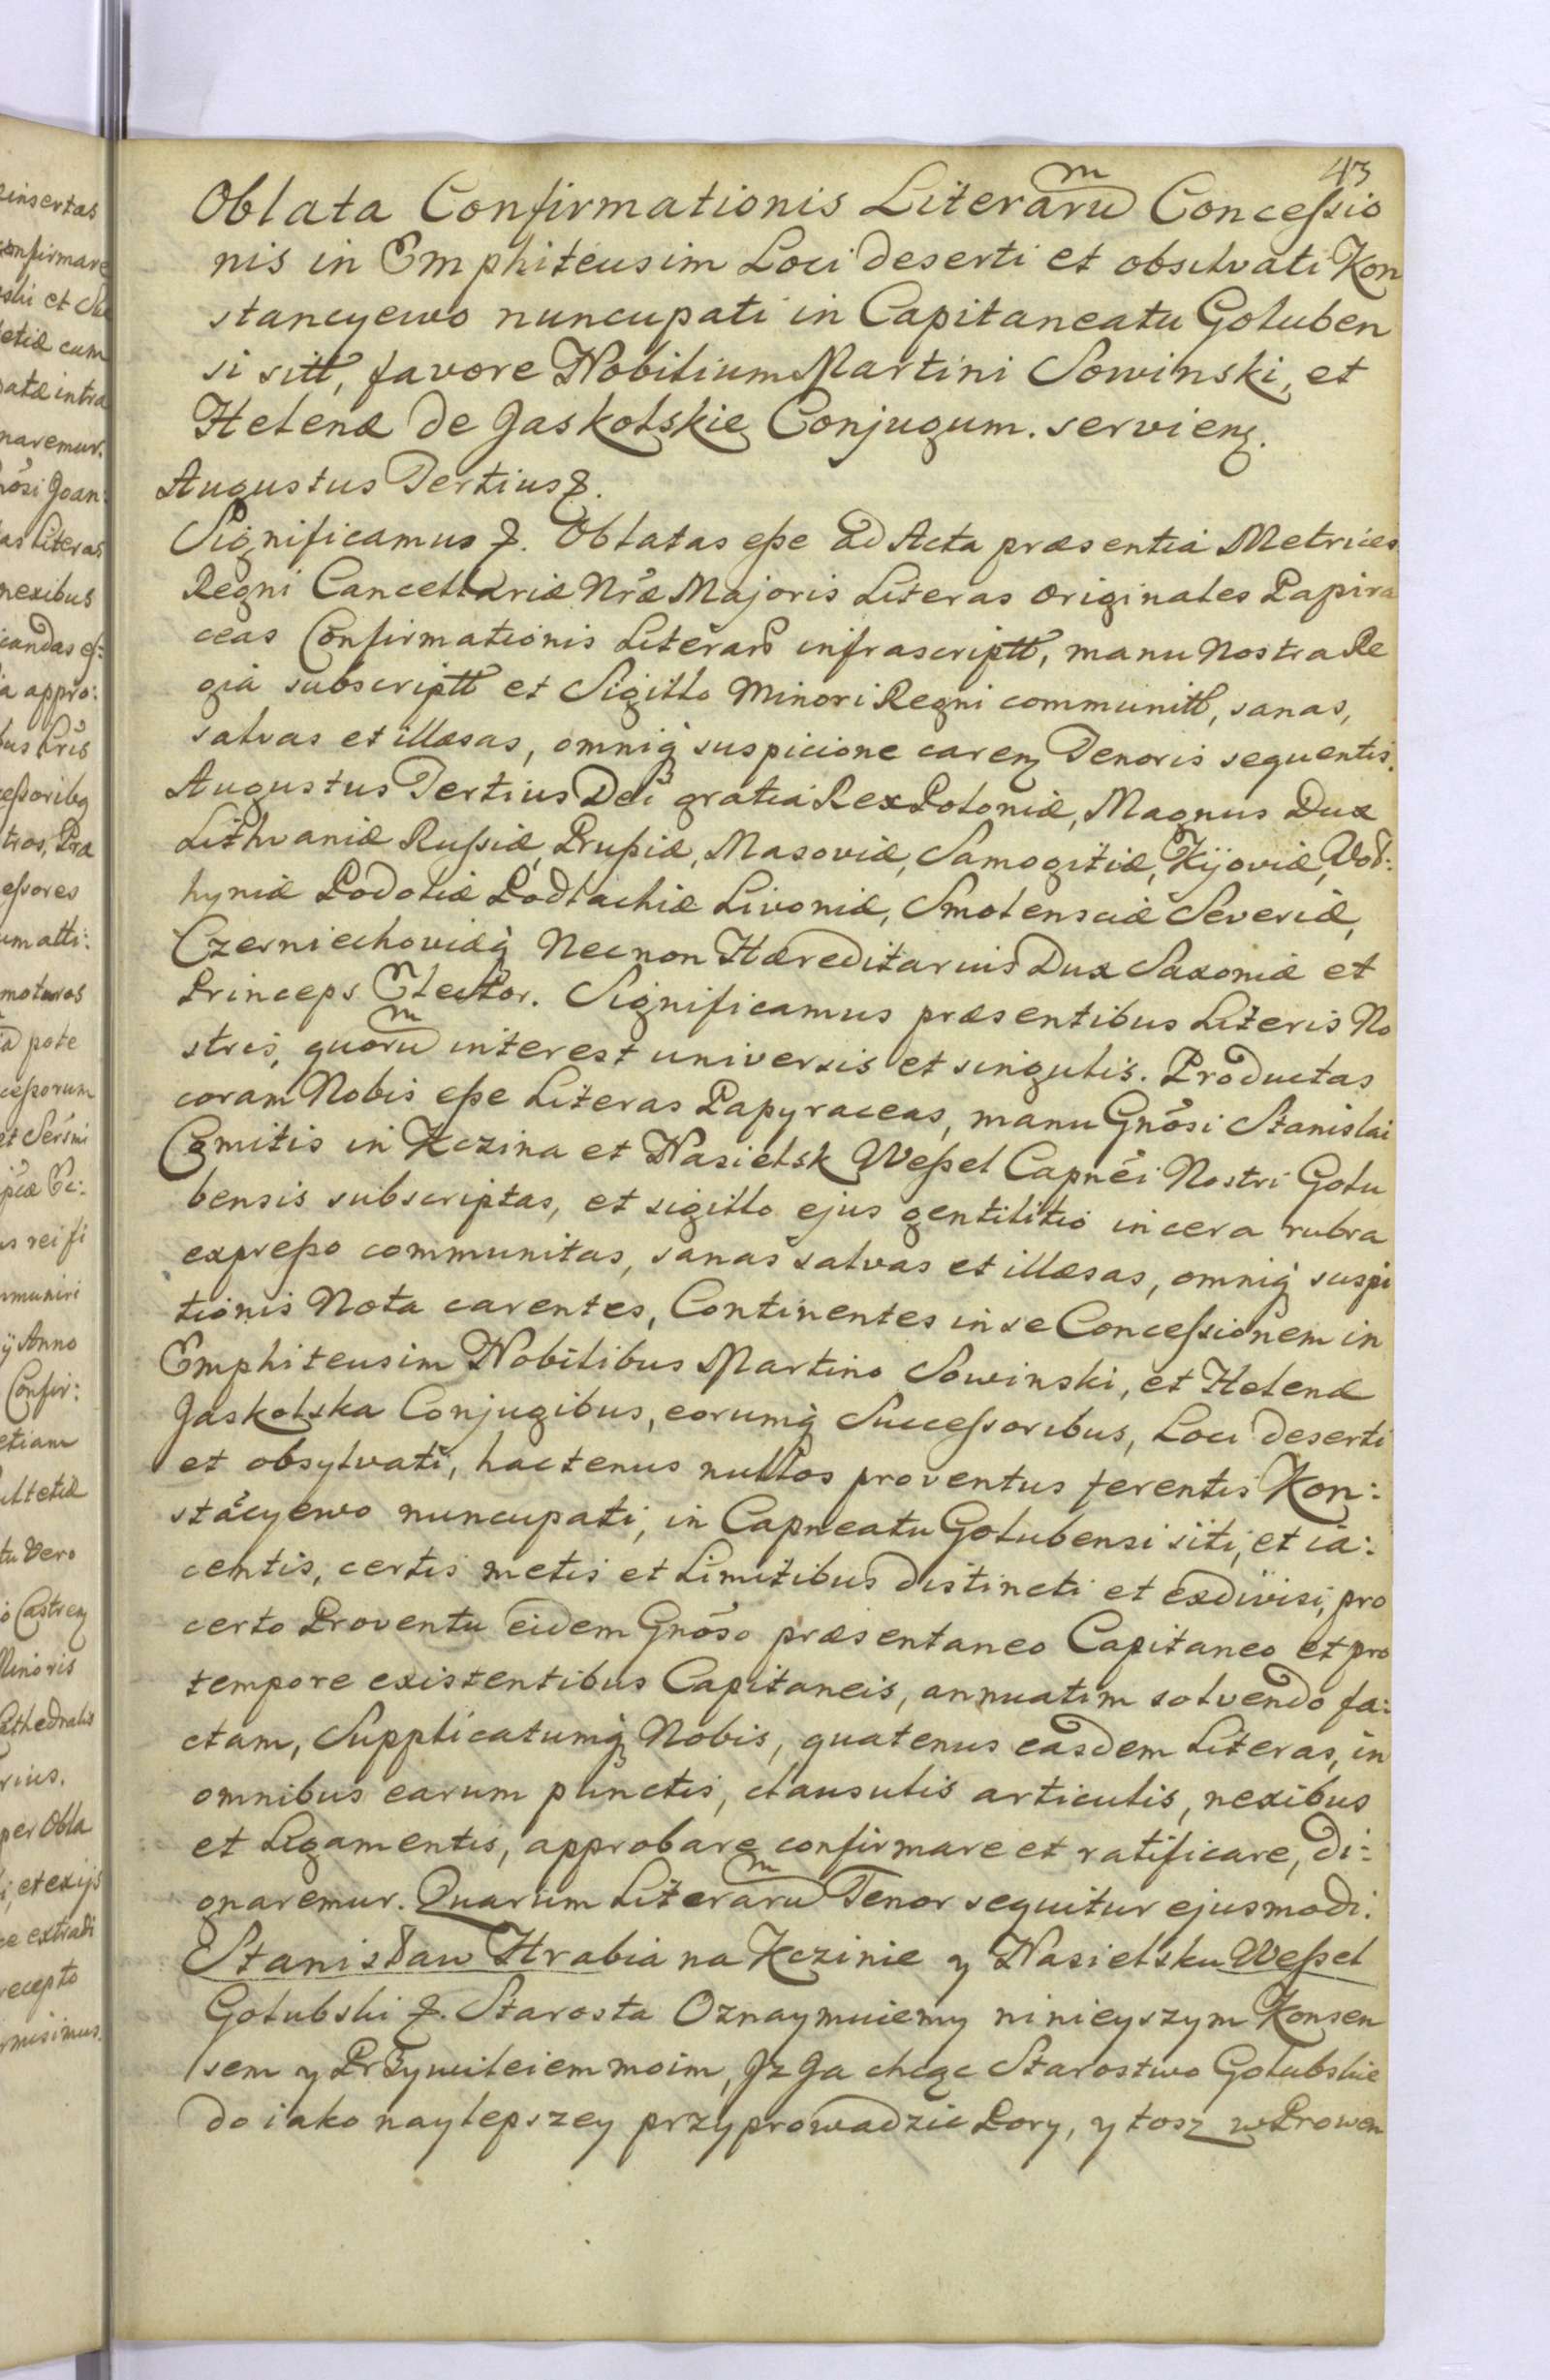 43
Oblata Confirmationis Literarum Concessio
nis in Emphiteusim Loci deserti et obsilvati Kon
stancyewo nuncupati in Capitaneatu Goluben
si sitt, favore Nobilium Martini Sowinski, et
Helenæ de Jaskolskie Conjugum. servienʒ.
Augustus Tertius ꝛ.
Significamus ꝛ. Oblatas esse ad Acta præsentia Metrices
Regni Cancellariæ Nræ Majoris Literas originales Papira
ceas Confirmationis Literarū infrascriptt, manu Nostra Re
gia subscriptt et Sigillo Minori Regni communitt, sanas,
salvas et illæsas, omniq̃ suspicione carenʒ Tenoris sequentis.
Augustus Tertius Dei gratia Rex Poloniæ, Magnus Dux
Lithvaniæ Russiæ, Prussiæ, Masoviæ, Samogitiæ, Kijoviæ, Vol:
hyniæ Podoliæ Podlachiæ Livoniæ, Smolensciæ Severiæ,
Czerniechoviæq̃ Necnon Hæreditarius Dux Saxoniæ et
Princeps Elector. Significamus præsentibus Literis No
stris, quorum interest universis et singulis. Productas
coram Nobis esse Literas Papyraceas, manu Gnõsi Stanislai
Comitis in Kczina et Nasielsk Wessel Capnẽi Nostri Golu
bensis subscriptas, et sigillo ejus gentilitio in cera rubra
expresso communitas, sanas salvas et illæsas, omniq̃ suspi
tionis Nota carentes, Continentes in se Concessionem in
Emphiteusim Nobilibus Martino Sowinski, et Helenæ
Jaskolska Conjugibus, eorumq̃ Successoribus, Loci deserti
et obsylvati, hactenus nullos proventus ferentis Kon:
stãcyewo nuncupati, in Capneatu Golubensi siti, et ia:
centis, certis metis et Limitibus distincti et exdivisi, pro
certo Proventu eidem Gnõso præsentaneo Capitaneo et pro
tempore existentibus Capitaneis, annuatim solvendo fa:
ctam, Supplicatumq̃ Nobis, quatenus easdem Literas, in
omnibus earum punctis, clausulis articulis, nexibus
et Ligamentis, approbare confirmare et ratificare, di:
gnaremur. Quarum Literarum Tenor sequitur ejusmodi.
Stanisław Hrabia na Kczinie y Nasielsku Wessel
Golubski ꝛ. Starosta Oznaymuiemy ninieyszym Konsen
sem y Przywileiem moim, Jz Ja chcąc Starostwo Golubskie
do iako naylepszey przyprowadzic Pory, y tosz w Prowen